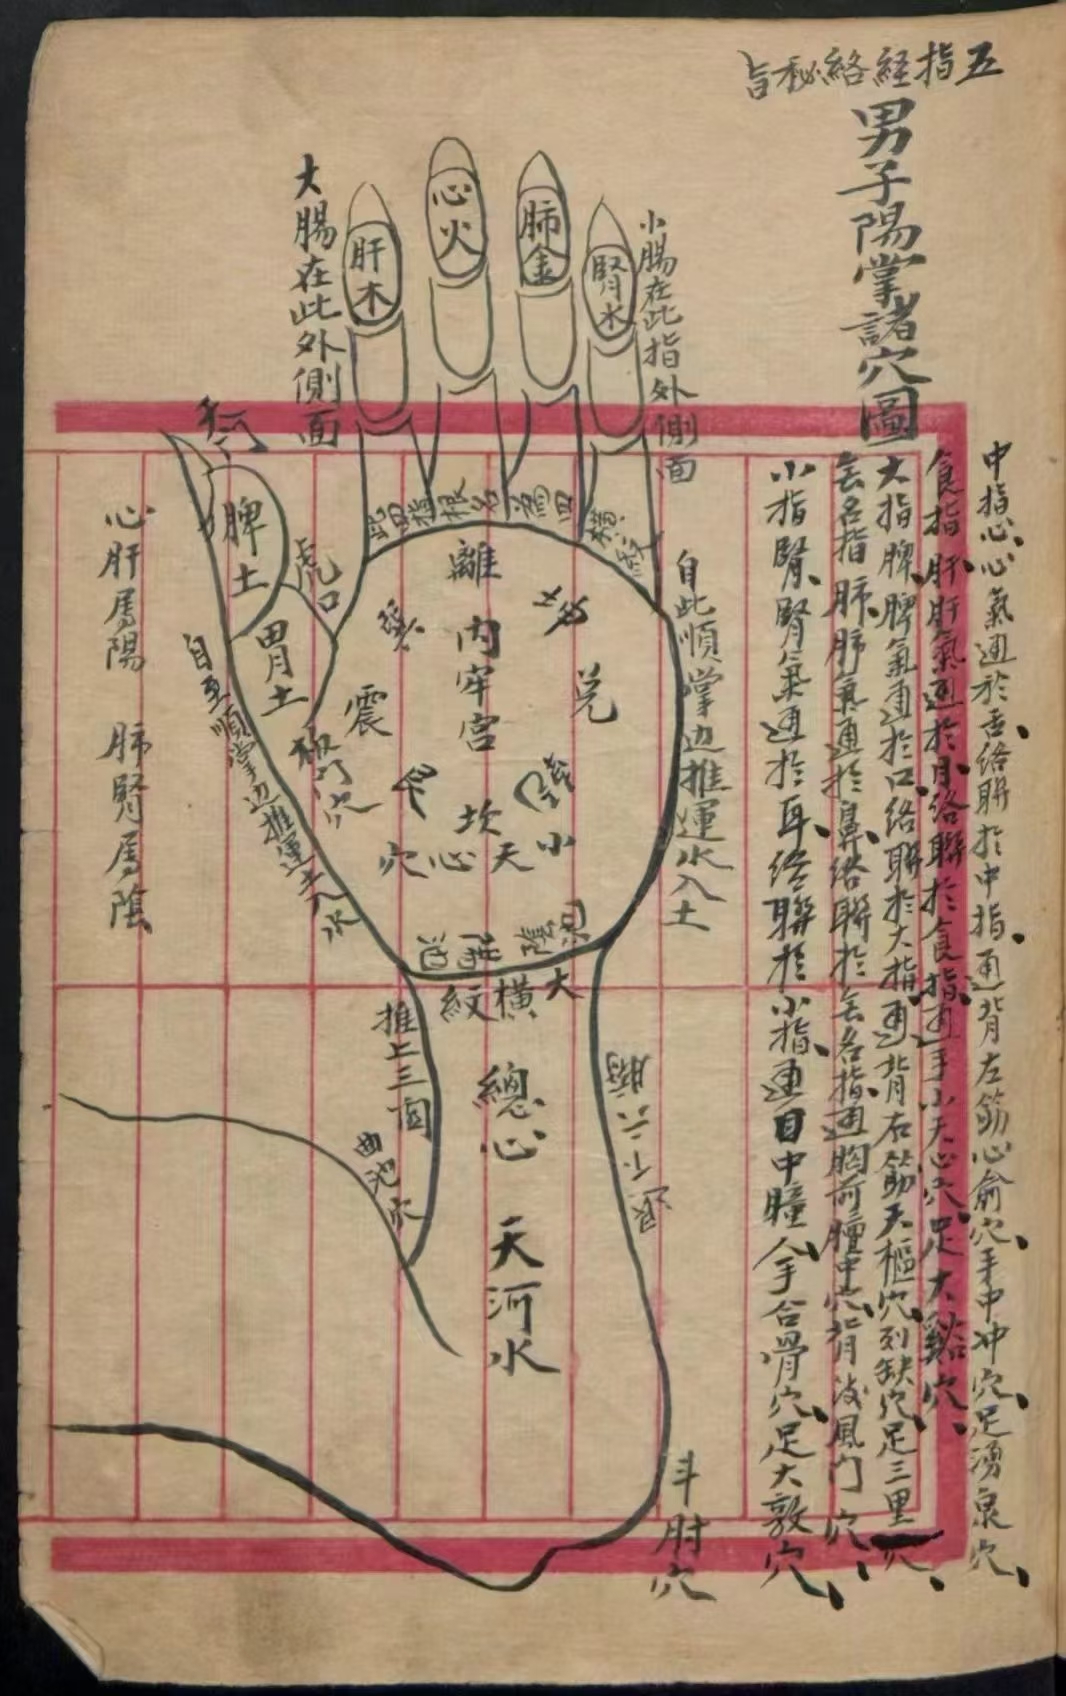 五指経絡秘旨
男子陽掌諸穴圖
中指心、心氣通於舌絡聯於中指、通背左筋心俞穴、手中冲穴、足湧泉穴、
食指肝、肝氣通於目、絡聯於食指、通手小天心穴、足大谿穴、
大指脾、脾氣通於口、絡聯於大指、通背右筋天樞穴、列缺穴、足三里穴、
無名指肺、肺氣通於鼻、絡聯於無名指、通胸前膻中穴、背後風門穴、
小指腎、腎氣通於耳、絡聯於小指、通目中瞳人、手合骨穴、足大敦穴、
小腸在此指外側面
大腸在此外側面
腎水
肺金
心火
肝木
脾土
胃土
虎口
此四指根名為四橫紋
自此順掌边推運水入土
離
兌
震
坎
艮
內牢宮
小天心穴
大橫紋
板門穴
自至順掌边推運土入水
心肝屬陽 肺腎屬陰
推上三関
曲池穴
總心
天河水
退下六腑
斗肘穴